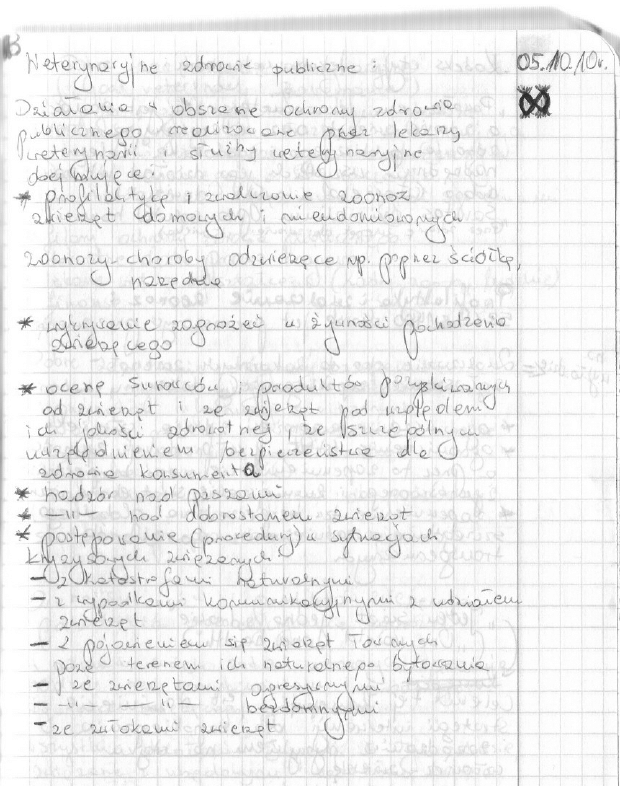 Weterynaryjne zdrowie publiczne : 05.10.10r.
Działania w obszarze ochrony zdrowia
publicznego realizowane przez lekarzy
weterynarii i służby weterynaryjne
obejmujące:
* profilaktykę i zwalczanie zoonoz
zwierząt domowych i nieudomowionych
zoonozy choroby odzwierzęce np. poprzez ściółkę,
narzędzia
* wykrywanie zagrożeń w żywności pochodzenia
zwierzęcego
* ocenę surowców i produktów pozyskiwanych
od zwierząt i ze zwierząt pod względem
ich jakości zdrowotnej, ze szczególnym
uwzględnieniem bezpieczeństwa dla
zdrowia konsumenta
* nadzór nad paszami
* —„— nad dobrostanem zwierząt
* postępowanie (procedury) w sytuacjach
kryzysowych związanych:
– z katastrofami naturalnymi
– z wypadkami komunikacyjnymi z udziałem
zwierząt
– z pojawieniem się zwierząt łownych
poza terenem ich naturalnego bytowania
– ze zwierzętami agresywnymi
– —„— —„— bezdomnymi
– ze zwłokami zwierząt